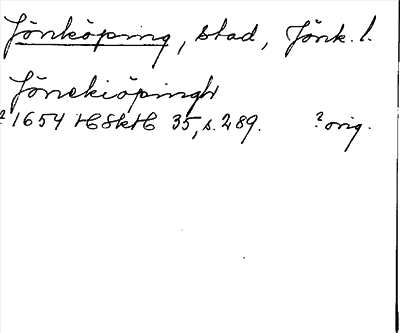 Jönköping, stad, Jönk. l.
Jönekiöpingh
? 1654 HSkH 35, s. 289. ? orig.